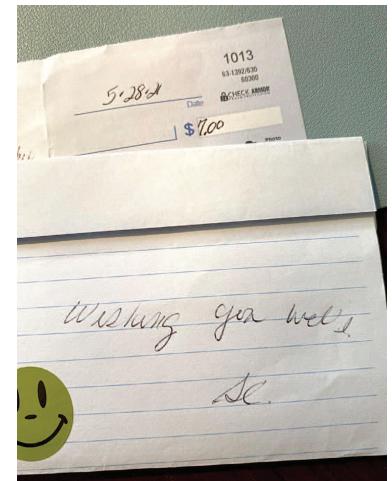 1013
63-1392/630
60300
5·28·21
Date
CHECK ARMOR
$ 7.00
PHOTO
Wishing you well